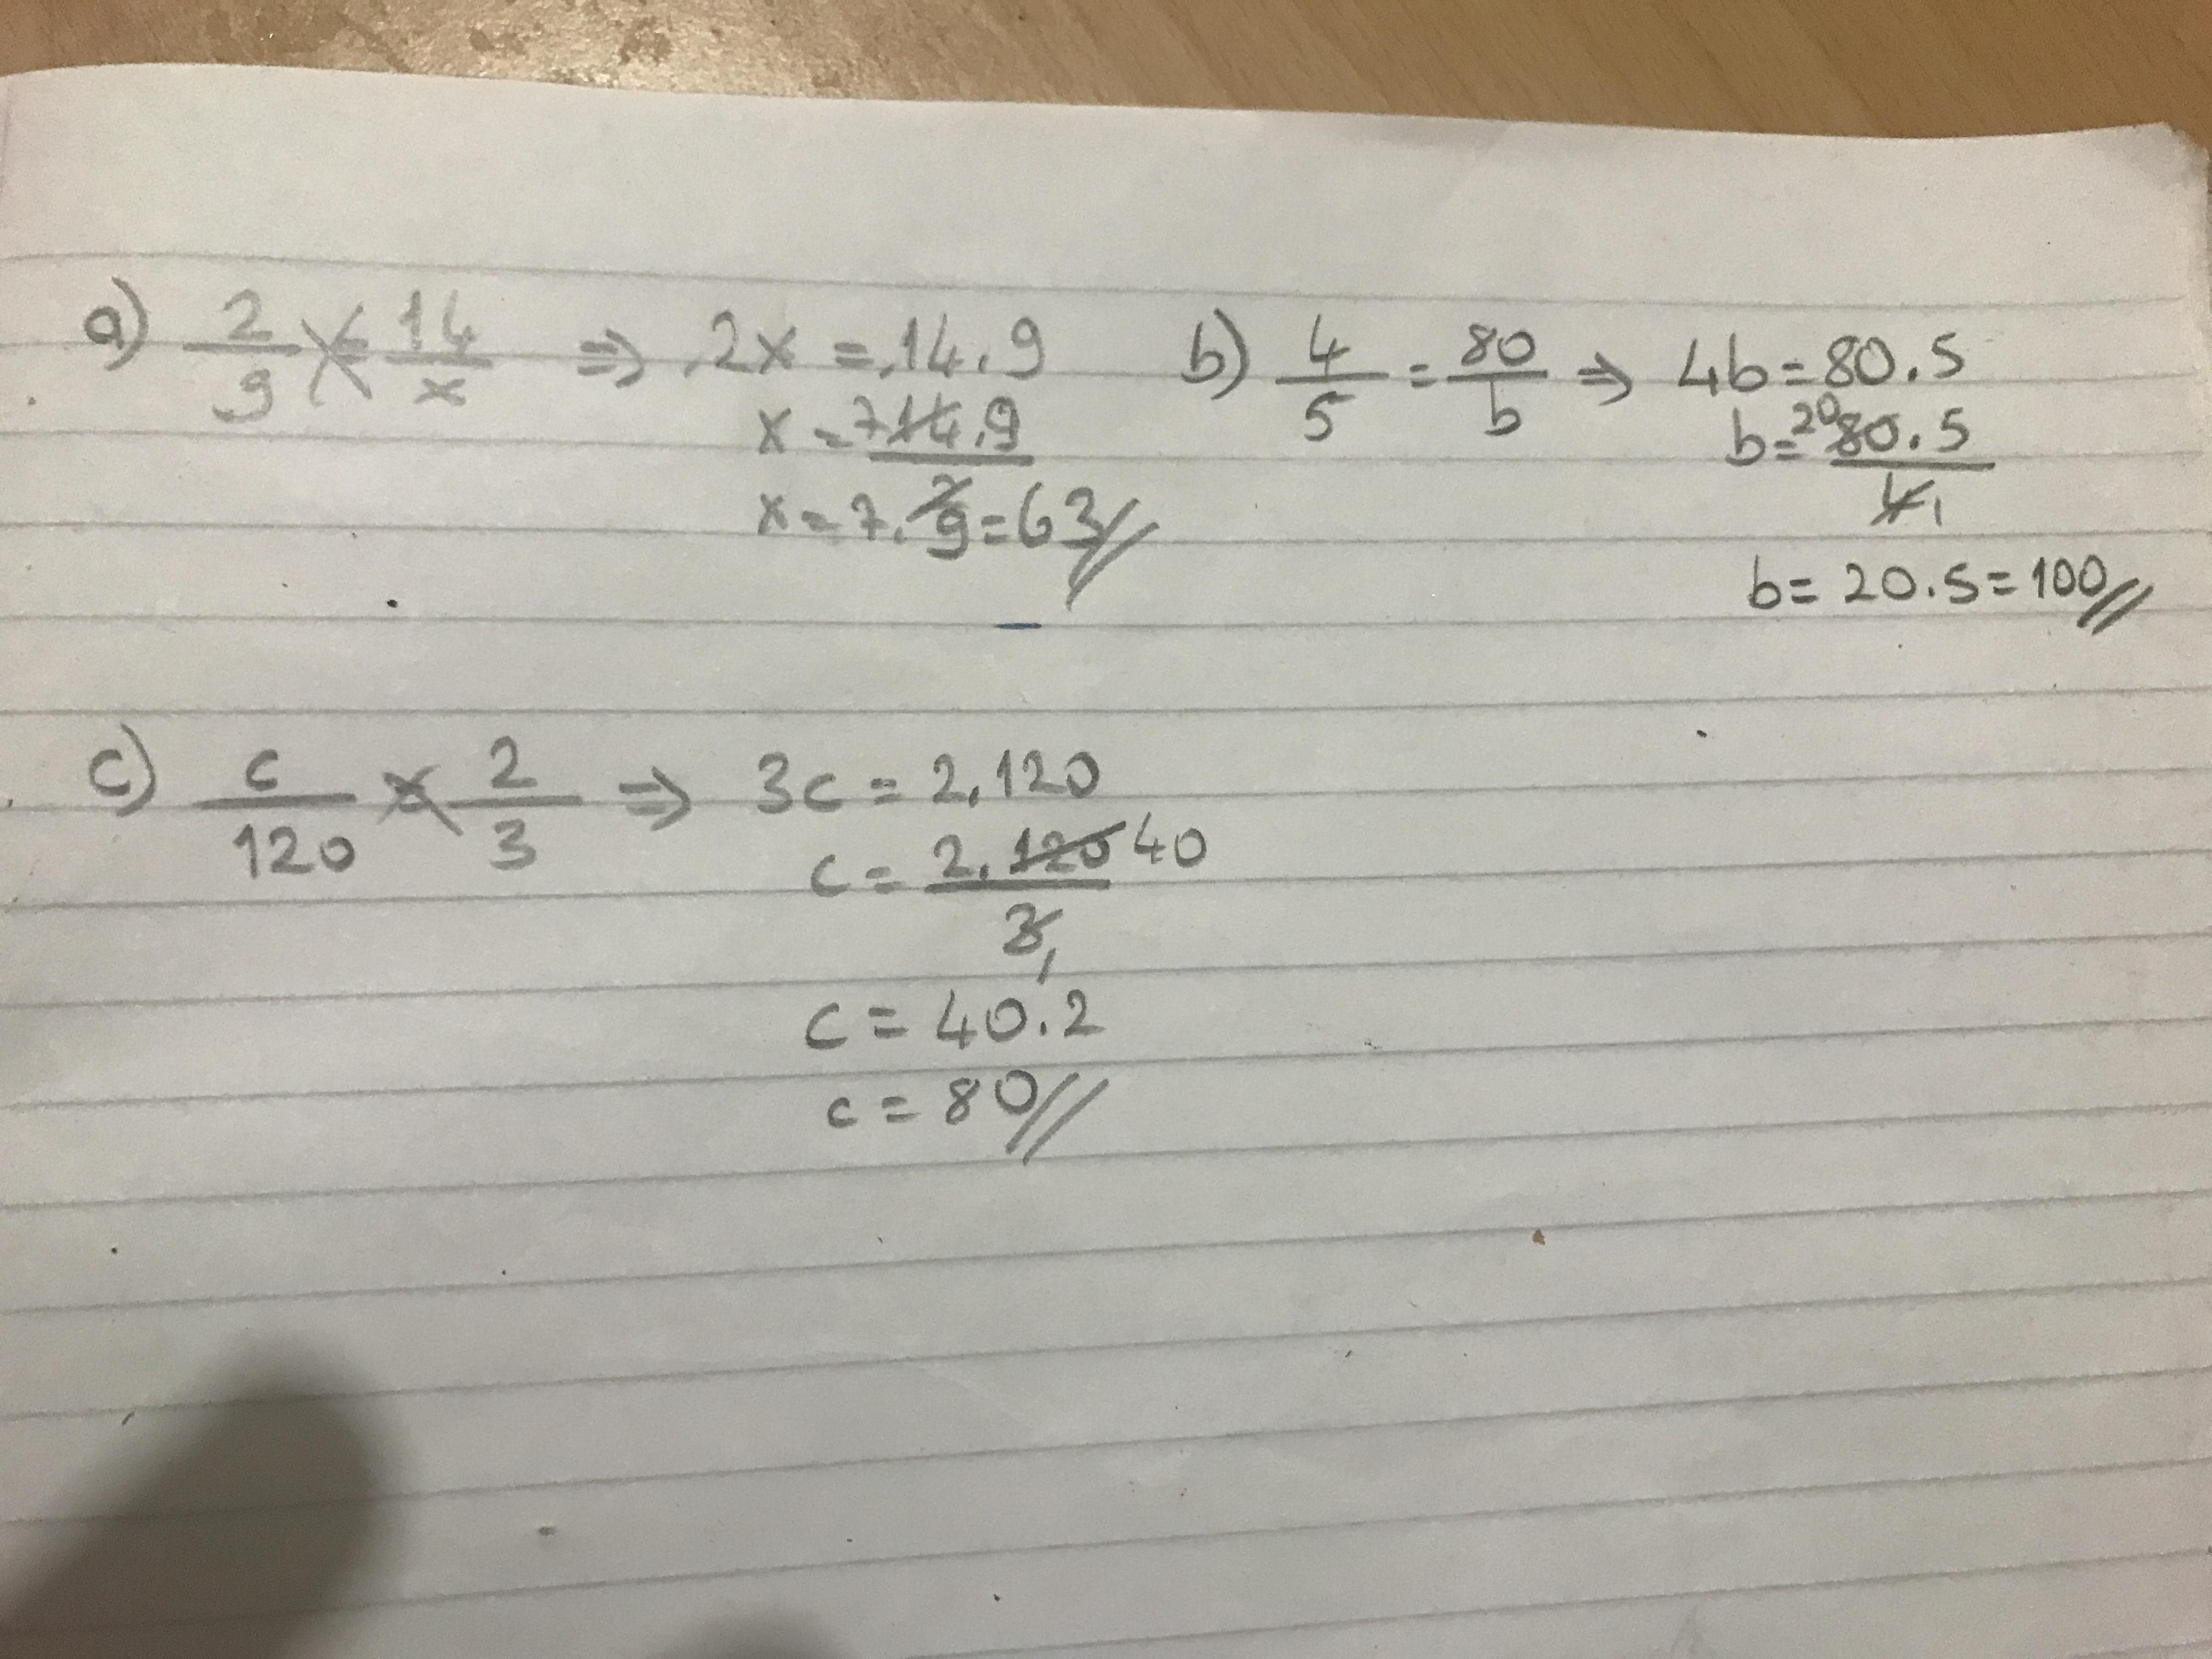 a) 2/9 = 14/x ⇒ 2x = 14.9
x = 7 14.9/2
x = 7.9 = 63//
b) 4/5 = 80/b ⇒ 4b = 80.5
b = 20 80.5/4 1
b = 20.5 = 100//
c) c/120 = 2/3 ⇒ 3c = 2.120
c = 2.120/3 40
1
c = 40.2
c = 80//